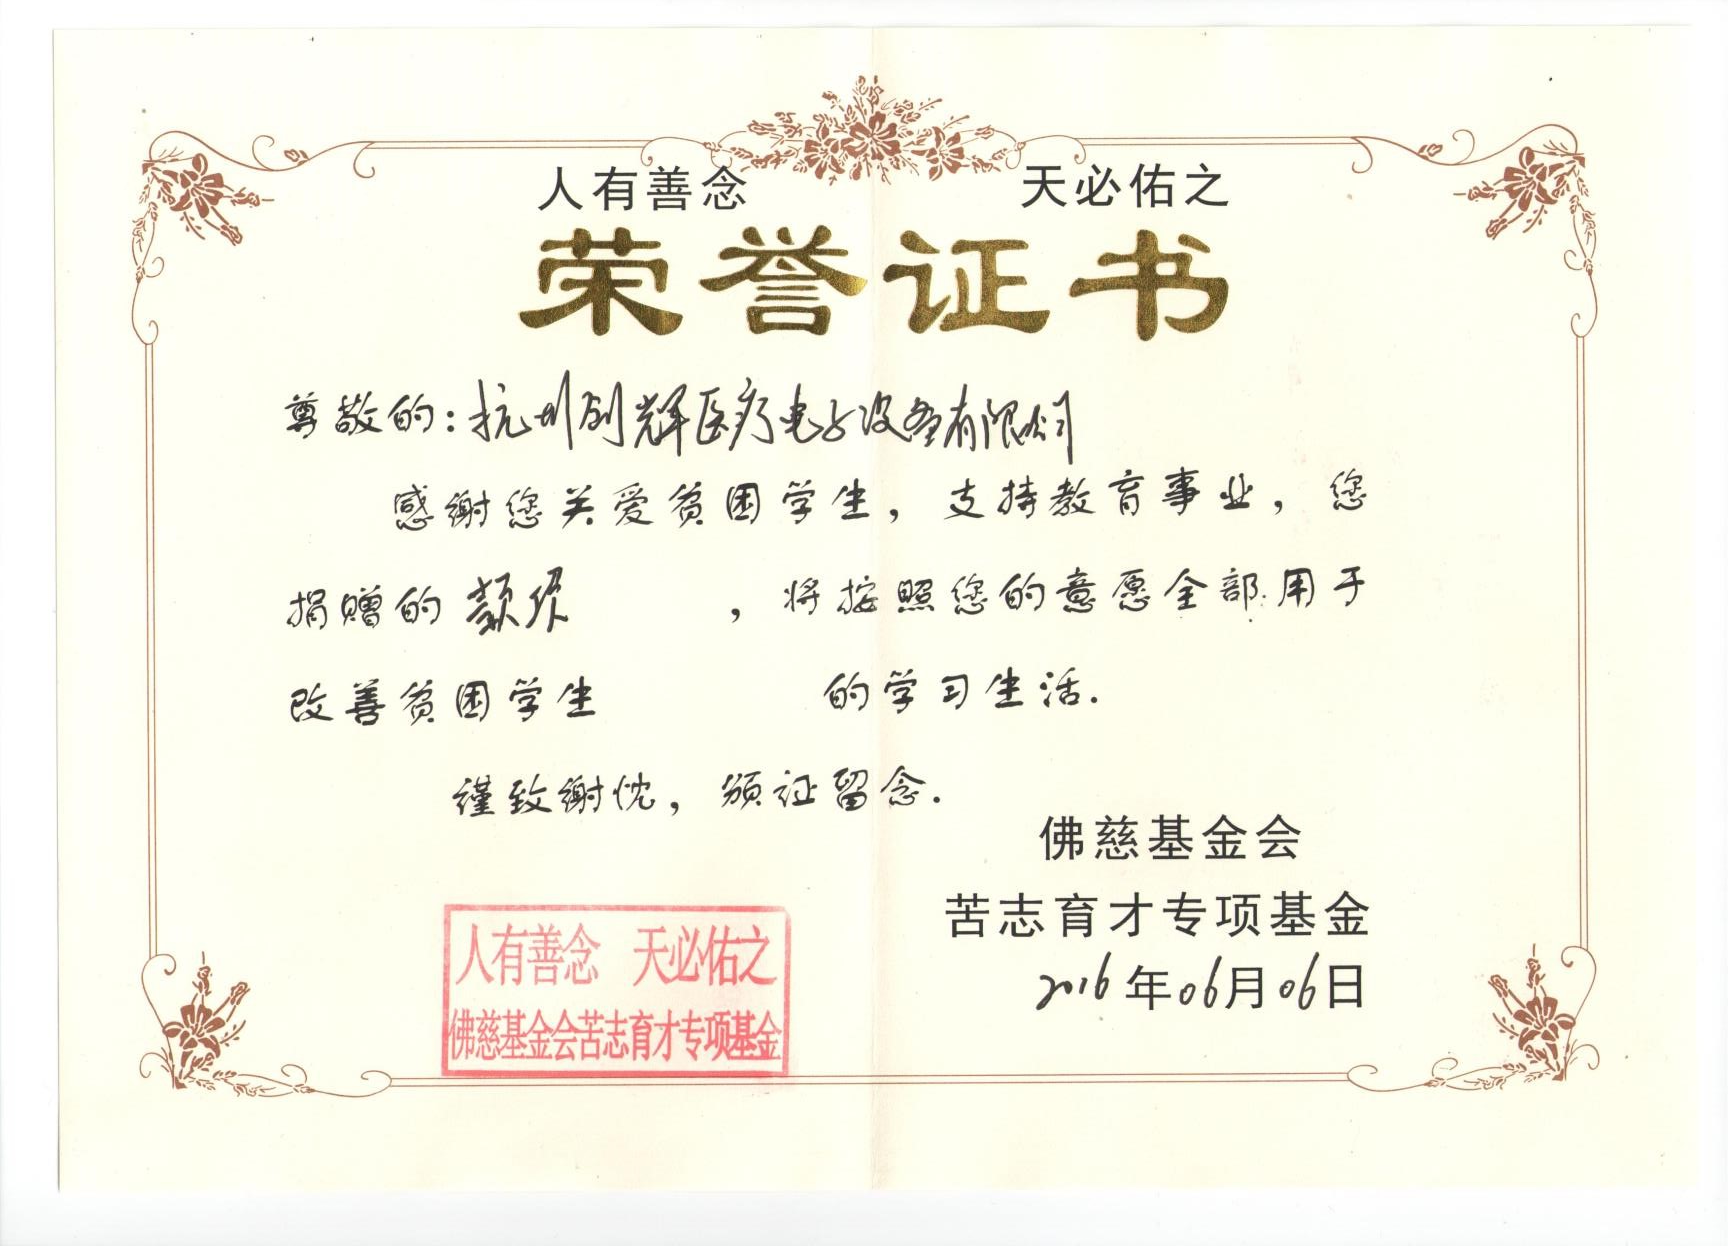 人有善念 天必佑之
荣誉证书
尊敬的：杭州创辉医疗电子设备有限公司
感谢您关爱贫困学生，支持教育事业，您
捐赠的 ，将按照您的意愿全部用于
改善贫困学生 的学习生活.
谨致谢忱，颁证留念.
佛慈基金会
苦志育才专项基金
2016年06月06日
人有善念 天必佑之
佛慈基金会苦志育才专项基金